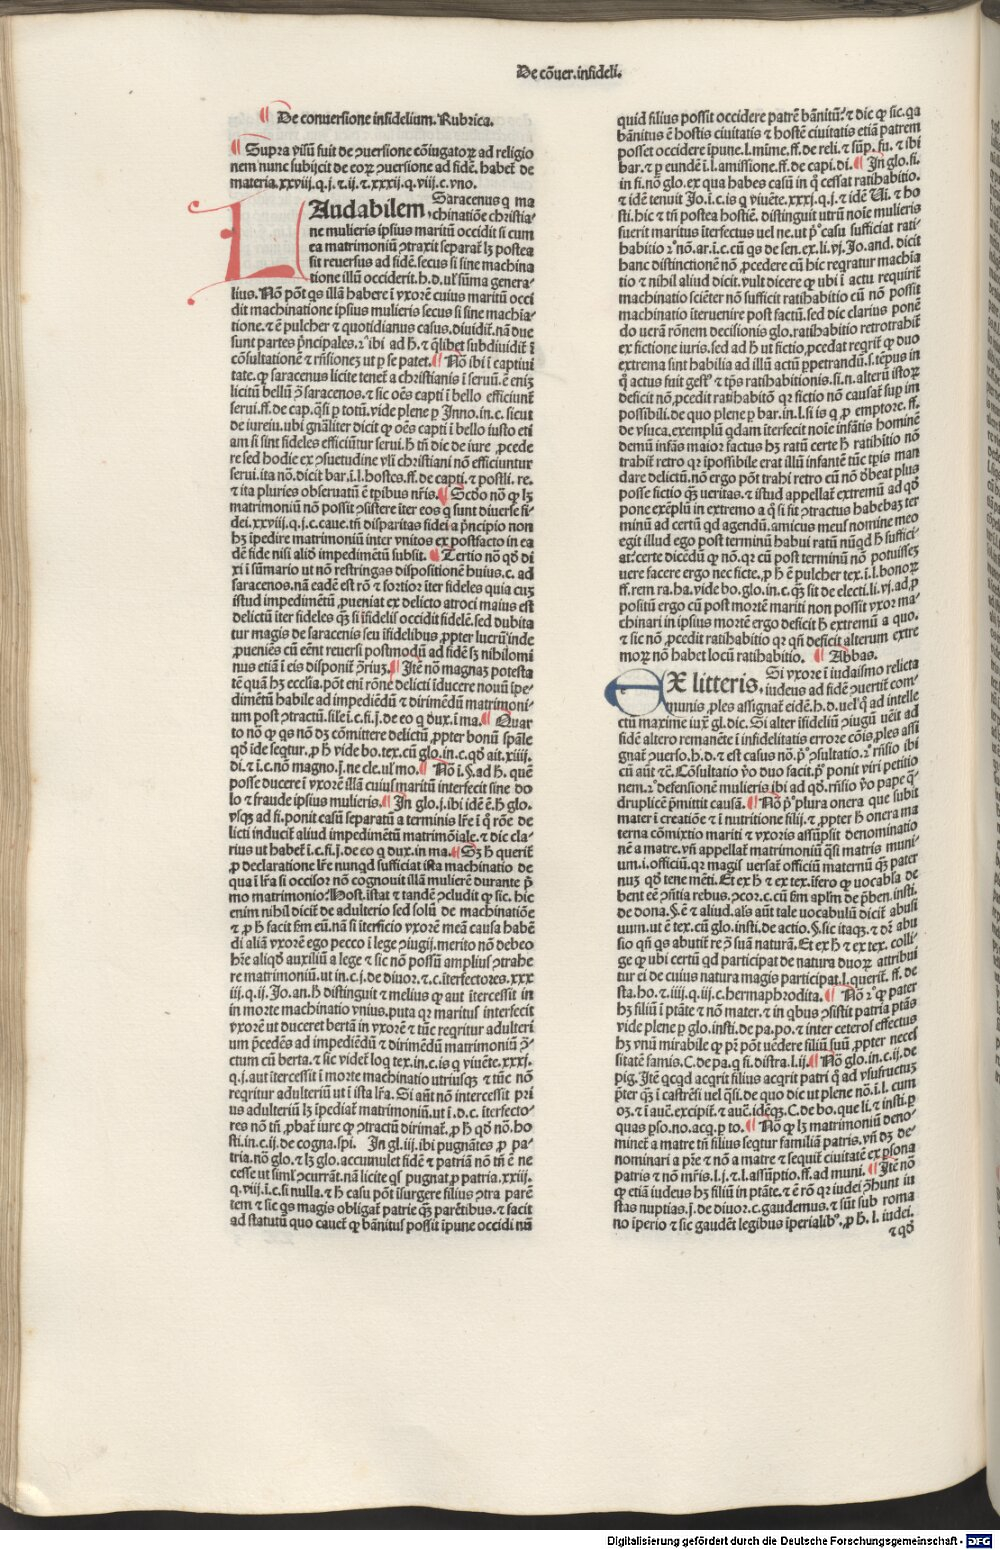 De cōuer.infideli.
De conuersione infidelium.Rubrica.
Supra visū fuit de ꝯuersione cōiugatoꝝ ad religio
nem nunc subijcit de eoꝝ ꝯuersione ad fidē. habet͛ de
materia.xxviij.q.j.⁊.ij.⁊.xxxij.q.viij.c.vno.
LAudabilem. Saracenus q̄ ma
chinatiōe christia-
ne mulieris ipsius maritū occidit si cum
ea matrimoniū ꝯtraxit separat͛ lꝫ postea
sit reuersus ad fidē.secus si sine machina
tione illū occiderit.h.d.ul͛ sūma genera-
lius. Nō pōt q̄s illā habere ī vxorē cuius maritū occi
dit machinatione ipsius mulieris secus si sine machīa-
tione.⁊ ē pulcher ⁊ quotidianus casus.diuidit͛.nā due
sunt partes p̄ncipales.2ᵃ ibi ad h̄.⁊ q̄libet subdiuidit͛ ī
cōsultationē ⁊ rn̄sionez ut p se patet. Nō ibi ī captiui
tate.ꝙ saracenus licite tenet͛ a christianis ī seruū.ē eniꝫ
licitū bellū ꝯ̄ saracenos.⁊ sic oēs capti ī bello efficiunt͛
serui.ff.de cap.q̄si p totū.vide plene p Inno.in.c.sicut
de iureiu.ubi gn̄aliter dicit ꝙ oēs capti ī bello iusto eti
am si sint fideles efficiūtur serui.h̄ tn̄ dic de iure ꝓcede
re sed hodie ex ꝯsuetudine vl̄i christiani nō efficiuntur
serui.ita nō.dicit bar.ī.l.hostes.ff.de capti.⁊ postli.re.
⁊ ita pluries obseruatū ē tp̄ibus nr̄is. Scd̄o nō ꝙ lꝫ
matrimoniū nō possit ꝯsistere īter eos q̄ sunt diuerse fi-
dei.xxviij.q.j.c.caue.tn̄ disparitas fidei a p̄ncipio non
hꝫ īpedire matrimoniū inter vnitos ex postfacto in ea
dē fide nisi aliō impedimētū subsit. Tertio nō qd̄ di
xi ī sūmario ut nō restringas dispositionē huius.c. ad
saracenos.nā eadē est rō ⁊ fortior īter fideles quia cuꝫ
istud impedimētū ꝓueniat ex delicto atroci maius est
delictū īter fideles ꝙ̄ si īfidelis occidit fidelē.sed dubita
tur magis de saracenis seu īfidelibus ꝓpter lucrū inde
ꝓueniēs cū eēnt reuersi postmodū ad fidē lꝫ nihilomi
nus etiā ī eis disponit͛ ꝯ̄riuꝫ. Itē nō magnaꝫ potesta
tē quā hꝫ ecclīa.pōt eni͛ rōne delicti īducere nouū īpe-
dimētū habile ad impediēdū ⁊ dirimēdū matrimoni-
um post ꝯtractū.sile ī.c.fi.j.de eo q̄ dux.ī ma. Quar
to nō ꝙ q̄s nō dꝫ cōmittere delictū ꝓpter bonū spāle
qd̄ īde seq̄tur.ꝑ h̄ vide bo.tex.cū glo.in.c.qd̄ ait.xiiij.
di.⁊ ī.c.nō magno.j.ne cle.ul͛ mo. Nō ī.§.ad h̄. quē
posse ducere ī vxorē illā cuius maritū interfecit sine do
lo ⁊ fraude ipsius mulieris. In glo.j.ibi idē ē.h̄ glo.
vsqꝫ ad fi.ponit casū separatū a terminis lr̄e ī q̄ rōe de
licti inducit͛ aliud impedimētū matrimōiale.⁊ dic cla-
rius ut habet͛ ī.c.fi.j.de eo q̄ dux.in ma. Sꝫ h̄ querit͛
ꝓ declaratione lr̄e nunqd̄ sufficiat ista machinatio de
qua ī lr̄a si occisor nō cognouit illā mulierē durante p̄
mo matrimonio? Host.istat ⁊ tandē ꝯcludit ꝙ sic. hic
enim nihil dicit͛ de adulterio sed solū de machinatiōe
⁊ ꝓ h̄ facit s̄m eū.nā si īterficio vxorē meā causa habē
di aliā vxorē ego pecco ī legē ꝯiugij.merito nō debeo
hr̄e aliqd̄ auxiliū a lege ⁊ sic nō possū amplius ꝯtrahe
re matrimoniū.ut in.c.j.de diuor.⁊.c.īterfectores.xxx
iij.q.ij.Jo.an.h̄ distinguit ⁊ melius ꝙ aut ītercessit in
in morte machinatio vnius.puta qꝛ maritus interfecit
vxorē ut duceret bertā in vxorē ⁊ tūc reqritur adulteri
um p̄cedēs ad impediēdū ⁊ dirimēdū matrimoniū ꝯ̄-
ctum cū berta.⁊ sic videt͛ loq̄ tex.in.c.is q̄ viuēte.xxxj.
q.j.aut ītercessit ī morte machinatio utriusqꝫ ⁊ tūc nō
reqritur adulteriū ut ī ista lr̄a. Si aūt nō intercessit pri
us adulteriū lꝫ īpediat͛ matrimoniū.ut ī.d.c. īterfecto-
res nō tn̄ ꝓbat͛ iure ꝙ ꝯtractū dirimat͛.ꝓ h̄ qd̄ nō.ho
sti.in.c.ij.de cogna.spi. In gl.iij.ibi pugnātes ꝓ pa-
tria.nō glo.⁊ lꝫ glo.accumulet fidē ⁊ patriā nō tn̄ ē ne
cesse ut siml͛ ꝯcurrāt.nā licite q̄s pugnat ꝓ patria.xxiij.
q.viij.ī.c.si nulla.⁊ h̄ casu pōt īsurgere filius ꝯtra parē
tem ⁊ sic q̄s magis obligat͛ patrie ꝙ̄ parētibus.⁊ facit
ad statutū quo cauet͛ ꝙ bānitus possit īpune occidi nū
quid filius possit occidere patrē bānitū? ⁊ dic ꝙ sic.qa
bānitus ē hostis ciuitatis ⁊ hostē ciuitatis etiā patrem
posset occidere īpune.l.mīme.ff.de reli.⁊ sūp.fu.⁊ ibi
bar.⁊ p eundē ī.l.amissione.ff.de capi.di. In glo.fi.
in fi.nō glo.ex qua habes casū in q̄ cessat ratihabitio.
⁊ idē tenuit Jo.ī.c.is q̄ viuēte.xxxj.q.j.⁊ idē Ul.⁊ ho
sti.hic ⁊ tn̄ postea hostiē.distinguit utrū noīe mulieris
fuerit maritus īterfectus uel ne.ut p̄º casu sufficiat rati-
habitio 2º nō.ar.ī.c.cū q̄s de sen.ex.li.vj.Jo.and.dicit
hanc distinctionē nō ꝓcedere cū hic reqratur machia
tio ⁊ nihil aliud dicit.vult dicere ꝙ ubi ī actu requirit͛
machinatio sciēter nō sufficit ratihabitio cū nō possit
machinatio īteruenire post factū.sed dic clarius ponē
do uerā rōnem decisionis glo.ratihabitio retrotrahit͛
ex fictione iuris.sed ad h̄ ut fictio ꝓcedat reqrit͛ ꝙ duo
extrema sint habilia ad illū actū ꝑpetrandū.s.tēpus in
q̄ actus fuit gest͛ ⁊ tp̄s ratihabitionis.si.n.alterū istoꝝ
deficit nō ꝓcedit ratihabitō qꝛ fictio nō causat͛ sup im
possibili.de quo plene p bar.in.l.si is q̄ ꝓ emptore.ff.
de vsuca.exemplū qdam īterfecit noīe infātis hominē
demū infās maior factus hꝫ ratū certe h̄ ratihītio nō
trahit͛ retro qꝛ īpossibile erat illū infantē tūc tp̄is man
dare delictū.nō ergo pōt trahi retro cū nō d̄beat plus
posse fictio ꝙ̄ ueritas.⁊ istud appellat͛ extremū ad qd̄
pone exēplū in extremo a q̄ si fit ꝯtractus habebaꝫ ter
minū ad certū qd̄ agendū.amicus meus nomine meo
egit illud ego post terminū habui ratū nūqd̄ h̄ suffici-
at? certe dicēdū ꝙ nō.qꝛ cū post terminū nō potuisseꝫ
uere facere ergo nec ficte.ꝓ h̄ ē pulcher tex.ī.l.bonoꝝ
ff.rem ra.ha.vide bo.glo.in.c.ꝙ̄ sit de electi.li.vj.ad ꝓ
positū ergo cū post mortē mariti non possit vxor ma-
chinari in ipsius mortē ergo deficit h̄ extremū a quo.
⁊ sic nō ꝓcedit ratihabitio qꝛ qn̄ deficit alterum extre
moꝝ nō habet locū ratihabitio. Abbas.
EX litteris. Si vxore ī iudaismo relicta
iudeus ad fidē ꝯuertit͛ com-
munis ꝓles assignat͛ eidē.h.d.uel q̄ ad intelle
ctū maxime iux͛ gl.dic. Si alter īfideliū ꝯiugū uēit ad
fidē altero remanēte ī infidelitatis errore cōis ꝓles assi
gnat͛ ꝯuerso.h.d.⁊ est casus nō.p̄º ꝯsultatio.2º rn̄sio ibi
cū aūt ⁊c̄. Cōsultatio v̄o duo facit.p̄º ponit viri petitio
nem.2º defensionē mulieris ibi ad qd̄.rn̄sio v̄o pape q̄-
druplicē p̄mittit causā. Nō p̄º plura onera que subit
mater ī creatiōe ⁊ ī nutritione filij.⁊ ꝓpter h̄ onera ma
terna cōmixtio mariti ⁊ vxoris assūpsit denominatio
nē a matre.vn̄ appellat͛ matrimoniū q̄si matris muni-
um.i.officiū.qꝛ magis versat͛ officiū maternū ꝙ̄ pater
nuꝫ qd̄ tene mēti. Et ex h̄ ⁊ ex tex.īfero ꝙ uocabl̄a de
bent eē ꝯ̄sitia rebus.ꝯcor.c.cū s̄m apl̄m de p̄ben.insti.
de dona.§.ē ⁊ aliud.als aūt tale uocabulū dicit͛ abusi
uum.ut ē tex.cū glo.insti.de actio.§.sic itaqꝫ.⁊ dꝛ abu
sio qn̄ q̄s abutit͛ re ꝯ̄ suā naturā. Et ex h̄ ⁊ ex tex. colli-
ge ꝙ ubi certū qd̄ participat de natura duoꝝ attribui
tur ei de cuius natura magis participat.l.querit͛.ff.de
sta.ho.⁊.iiij.q.iij.c.hermaphrodita. Nō 2º ꝙ pater
hꝫ filiū ī ptāte ⁊ nō mater.⁊ in qbus ꝯsistit patria ptās
vide plene p glo.insti.de pa.po.⁊ inter ceteros effectus
hꝫ vnū mirabile ꝙ pr̄ pōt uēdere filiū suū ꝓpter necel
sitatē famis.C.de pa.q̄ fi.distra.l.ij. Nō glo.in.c.ij.de
pig. Itē qcqd̄ acqrit filius acqrit patri q̄ ad vsufructuꝫ
p̄ter ꝙ̄ ī castrēsi uel q̄si.de quo dic ut plene nō.ī.l. cum
oꝫ.⁊ ī auē.excipit͛.⁊ auē.idēqꝫ.C.de bo.que li.⁊ insti.p
quas pso.no.acq.p to. Nō ꝙ lꝫ matrimoniū deno-
minet͛ a matre tn̄ filius seqtur familiā patris.vn̄ dꝫ de-
nominari a pr̄e ⁊ nō a matre ⁊ sequit͛ ciuitatē ex psona
patris ⁊ nō mr̄is.l.j.⁊.l.assūptio.ff.ad muni. Itē nō
ꝙ etiā iudeus hꝫ filiū in ptāte.⁊ ē rō qꝛ iudei ꝯ̄hunt iu
stas nuptias.j.de diuor.c.gaudemus.⁊ sūt sub roma
no īperio ⁊ sic gaudēt legibus īperialibꝰ.ꝓ h̄. l. iudei.
⁊ qd̄
Digitalisierung gefördert durch die Deutsche Forschungsgemeinschaft - DFG